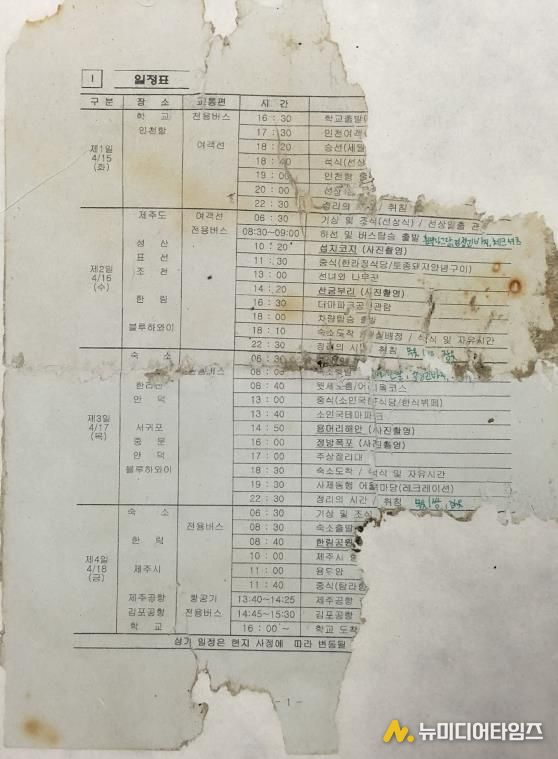 I 일정표
구 분 장 소 교통편 시 간
제1일 4/15 (화)
학 교 전용버스 16 : 30 학교출발(
인천항 17 : 30 인천여객
여객선 18 : 20 승선(세월
18 : 40 석식(선상
19 : 00 인천항 출
20 : 00 선상
22 : 30 정리의 / 취침
제2일 4/16 (수)
제주도 여객선 06 : 30 기상 및 조식(선상식) / 선상일출 관
전용버스 08:30~09:00 하선 및 버스탑승 출발
성 산 10 : 20 섭지코지 (사진촬영)
표 선 11 : 30 중식(한라정식당/토종돼지양념구이)
조 천 13 : 00 선녀와 나무꾼
14 : 20 산굼부리 (사진촬영)
한 림 16 : 30 더마파크공연관람
18 : 00 차량탑승 출발
블루하와이 18 : 10 숙소도착 / 실배정 / 석식 및 자유시간
22 : 30 정리의 시간 / 취침
제3일 4/17 (목)
숙 소 06 : 30
전용버스 08 : 00 숙소출발
한라산 08 : 40 윗세오름/어리목코스
안 덕 13 : 00 중식(소인국 식당/한식뷔페)
13 : 40 소인국테마파크
서귀포 14 : 50 용머리해안 (사진촬영)
중 문 16 : 00 정방폭포 (사진촬영)
안 덕 17 : 00 주상절리대
블루하와이 18 : 30 숙소도착 / 석식 및 자유시간
19 : 30 사제동행 어울 마당(레크레이션)
22 : 30 정리의 시간 / 취침
제4일 4/18 (금)
숙 소 06 : 30 기상 및 조식
전용버스 08 : 30 숙소출발
한 림 08 : 40 한림공원
10 : 00 제주시
제주시 11 : 00 용두암
11 : 40 중식(탐라
제주공항 항공기 13:40~14:25 제주공항
김포공항 전용버스 14:45~15:30 김포공항
학 교 16 : 00 ~ 학교 도착
상기 일정은 현지 사정에 따라 변동될
- 1 -
뉴미디어타임즈